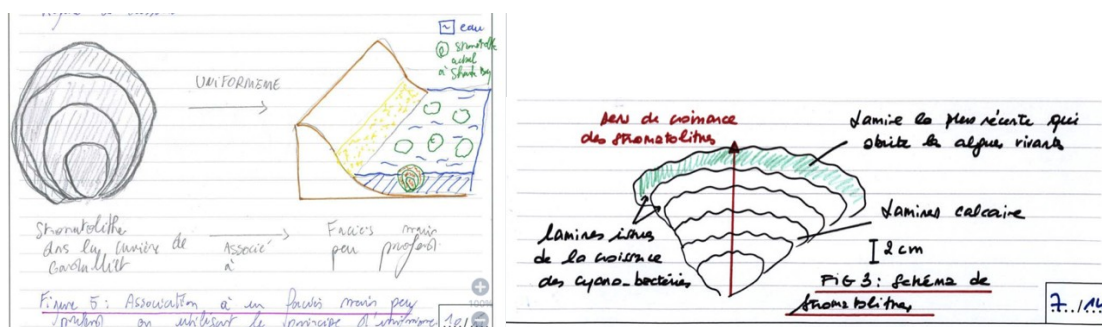 eau
stromatolithe
actuel
à Shark Bay
UNIFORMISME
Stromatolithe
dans la carrière de
Associé
à
Faciès marin
peu profond
Figure 5 : Association à un faciès marin peu
profond en utilisant le principe d'uniformisme
100%
Sens de croissance
des stromatolites
Lamine la plus récente qui
abrite les algues vivantes
Lamines calcaire
lamines issues
de la croissance
des cyano-bactéries
2 cm
FIG 3 : Schéma de
stromatolites
7../14